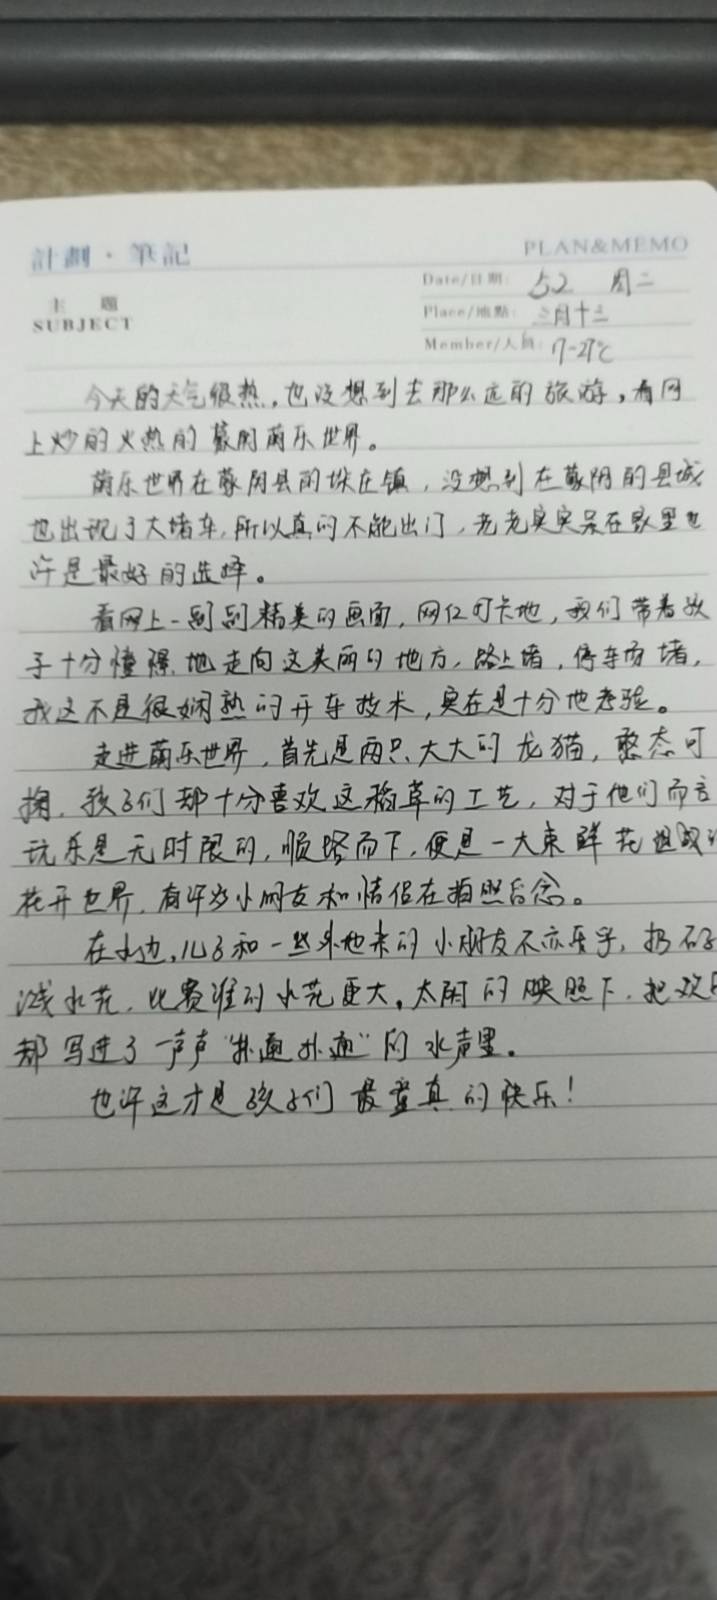 計劃·筆記
PLAN&MEMO
主 題
SUBJECT
Date/日期: 5.2 周二
Place/地點: 三月十三
Member/人員: 7-27℃
今天的天气很热，也没想到去那么远的旅游，看网
上炒的火热的蒙阴萌乐世界。
萌乐世界在蒙阴县的垛庄镇，没想到在蒙阴的县城
也出现了大堵车，所以真的不能出门，老老实实呆在家里也
许是最好的选择。
看网上一副副精美的画面，网红打卡地，我们带着孩
子十分憧憬地走向这美丽的地方，路上堵，停车场堵，
我这不是很娴熟的开车技术，实在是十分地考验。
走进萌乐世界，首先是两只大大的龙猫，憨态可
掬，孩子们都十分喜欢这稻草的工艺，对于他们而言
玩乐是无时限的，顺路而下，便是一大束鲜花组成
花开世界，有许多小朋友和情侣在拍照留念。
在水边，儿子和一些外地来的小朋友不亦乐乎，扔石子
溅水花，比赛谁的水花更大。太阳的映照下，把欢
都写进了一声声“扑通扑通”的水声里。
也许这才是孩子们最童真的快乐！